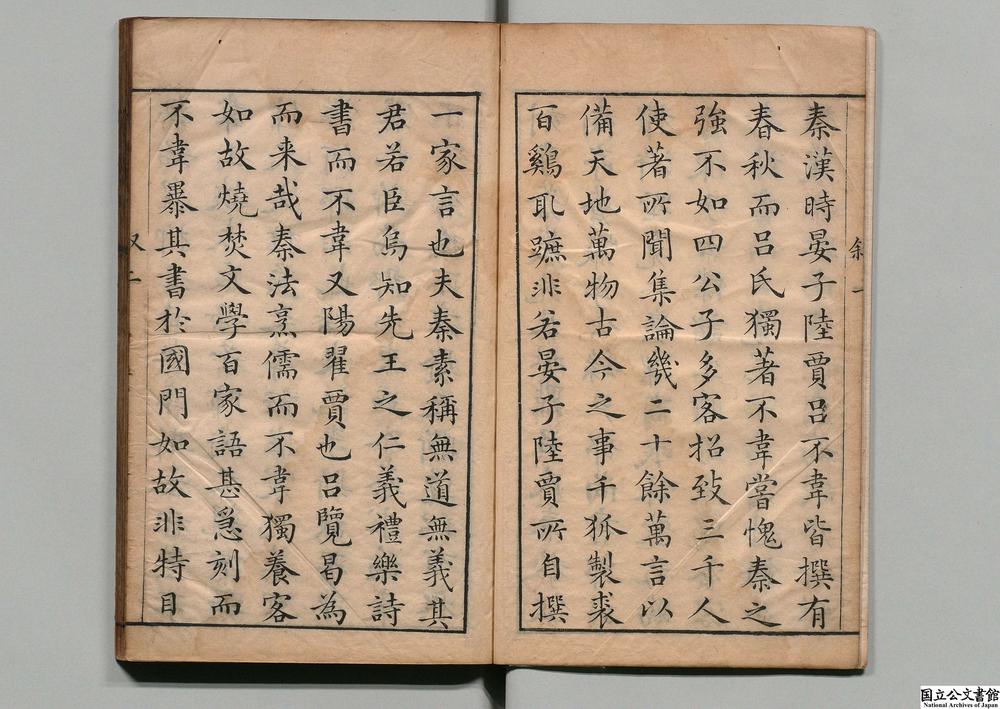 叙一
秦漢時晏子陸賈呂不韋皆撰有
春秋而呂氏獨著不韋嘗愧秦之
強不如四公子多客招致三千人
使著所聞集論幾二十餘萬言以
備天地萬物古今之事千狐製裘
百鷄取蹠非若晏子陸賈所自撰
一家言也夫秦素稱無道無義其
君若臣烏知先王之仁義禮樂詩
書而不韋又陽翟賈也呂覽曷為
而来哉秦法烹儒而不韋獨養客
如故燒焚文學百家語甚急刻而
不韋暴其書於國門如故非特目
又二
国立公文書館
National Archives of Japan